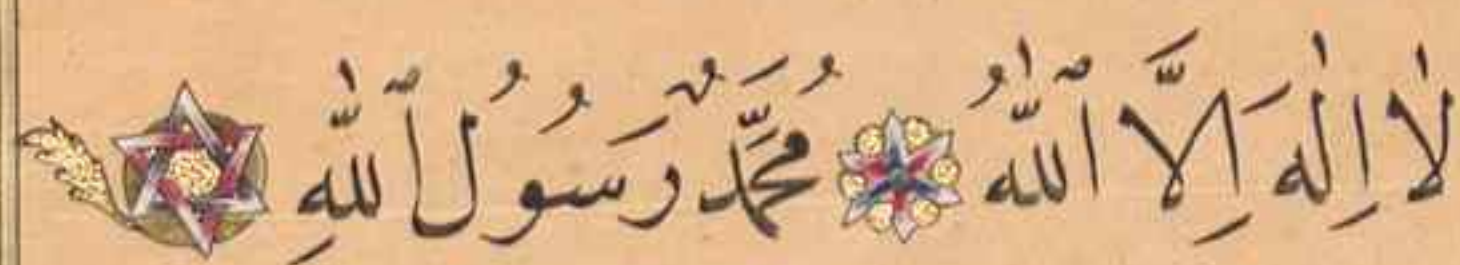 لَا اِلٰهَ اِلَّا ٱللّٰهُ مُحَمَّدٌ رَسُولُ ٱللّٰهِ